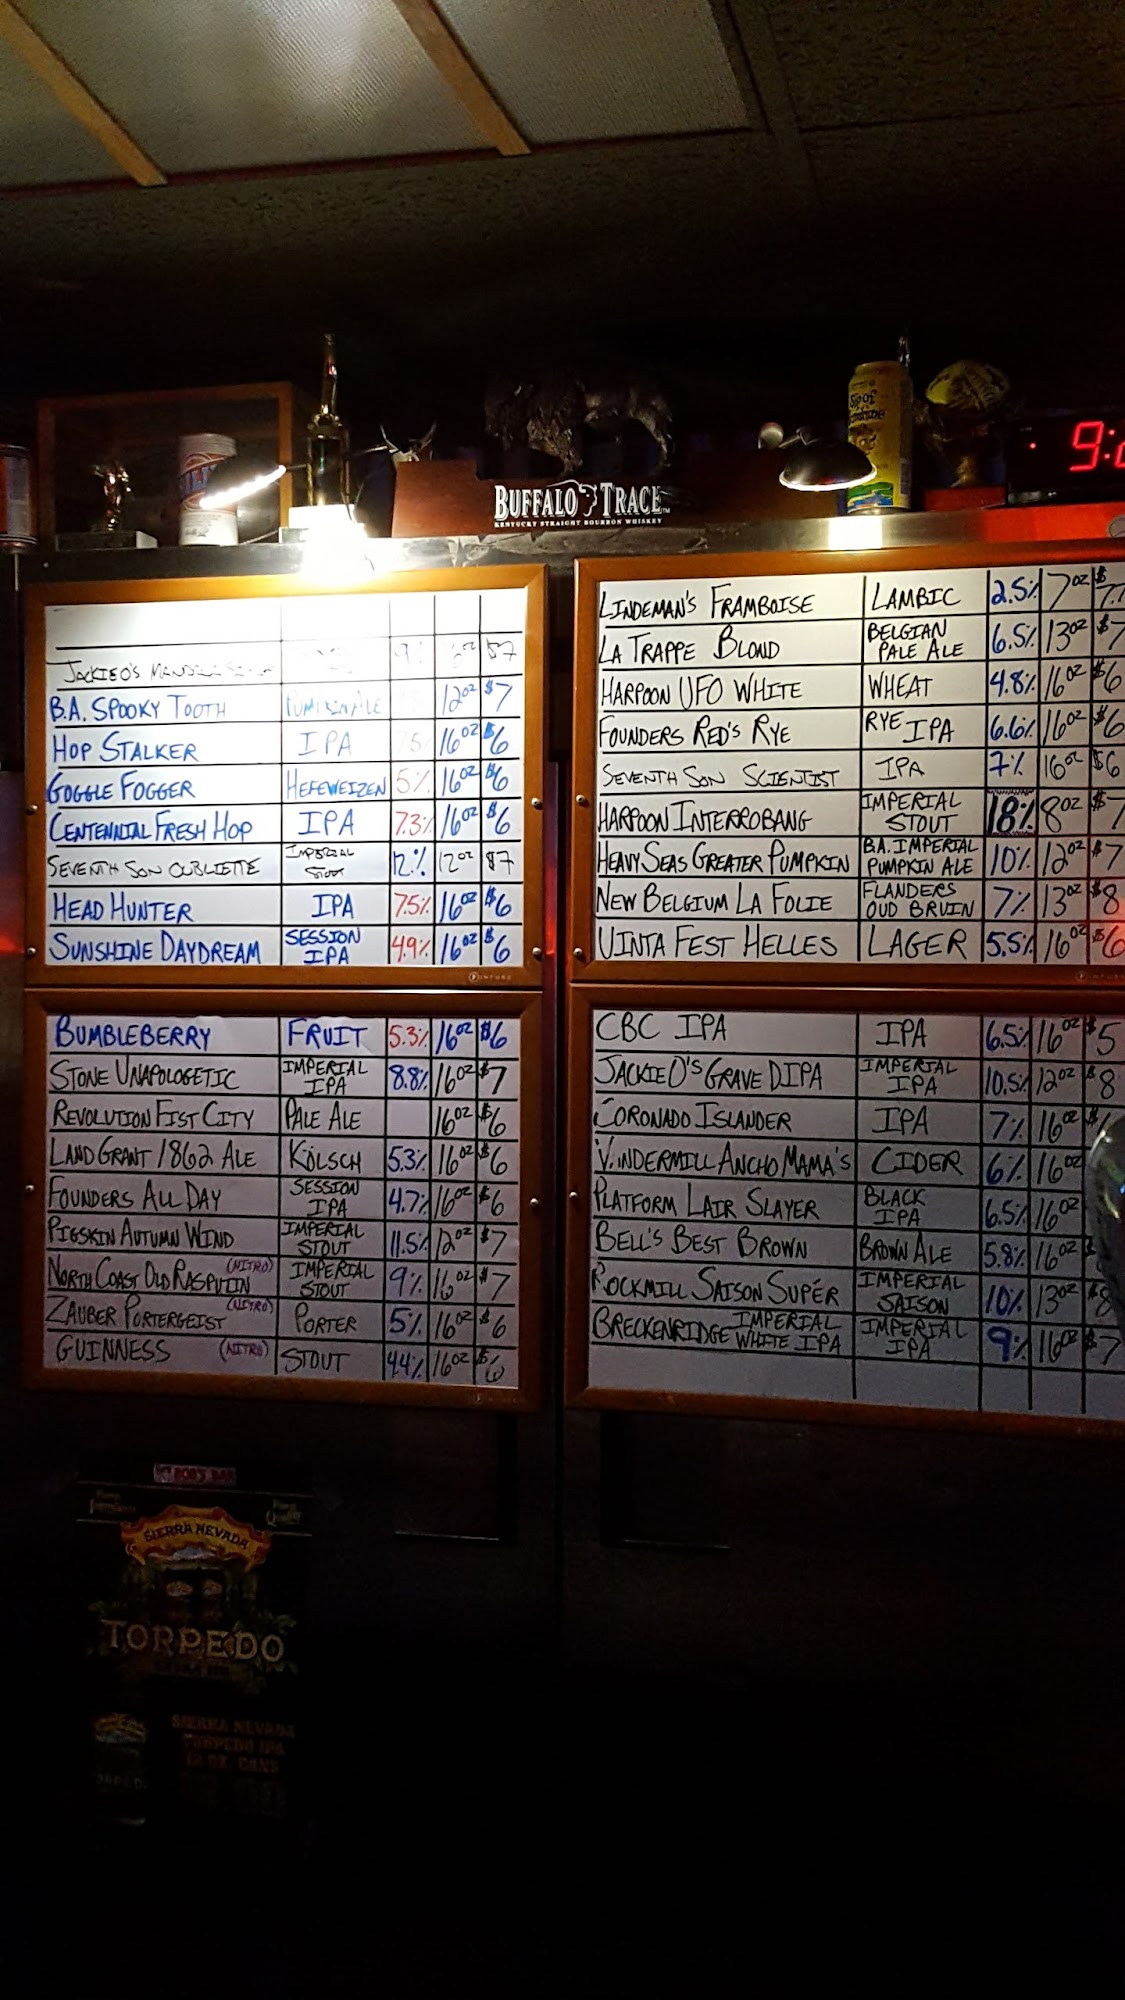 BUFFALO TRACE
KENTUCKY STRAIGHT BOURBON WHISKEY
9:
JACKIE O'S $7
B.A. SPOOKY TOOTH PUMPKIN ALE 12oz $7
HOP STALKER IPA 16oz $6
GOGGLE FOGGER HEFEWEIZEN 5% 16oz $6
CENTENNIAL FRESH HOP IPA 7.3% 16oz $6
SEVENTH SON OUBLIETTE IMPERIAL STOUT 12.% 12oz $7
HEAD HUNTER IPA 7.5% 16oz $6
SUNSHINE DAYDREAM SESSION IPA 4.9% 16oz $6
BUMBLEBERRY FRUIT 5.3% 16oz $6
STONE UNAPOLOGETIC IMPERIAL IPA 8.8% 16oz $7
REVOLUTION FIST CITY PALE ALE 16oz $6
LAND GRANT 1862 ALE KÖLSCH 5.3% 16oz $6
FOUNDERS ALL DAY SESSION IPA 4.7% 16oz $6
PIGSKIN AUTUMN WIND IMPERIAL STOUT 11.5% 12oz $7
NORTH COAST OLD RASPUTIN (NITRO) IMPERIAL STOUT 9% 16oz $7
ZAUBER PORTERGEIST (NITRO) PORTER 5% 16oz $6
GUINNESS (NITRO) STOUT 4.4% 16oz $6
LINDEMAN'S FRAMBOISE LAMBIC 2.5% 7oz
LA TRAPPE BLOND BELGIAN PALE ALE 6.5% 13oz $7
HARPOON UFO WHITE WHEAT 4.8% 16oz $6
FOUNDERS RED'S RYE RYE IPA 6.6% 16oz $6
SEVENTH SON SCIENTIST IPA 7% 16oz $6
HARPOON INTERROBANG IMPERIAL STOUT 18% 8oz $7
HEAVY SEAS GREATER PUMPKIN B.A. IMPERIAL PUMPKIN ALE 10% 12oz $7
NEW BELGIUM LA FOLIE FLANDERS OUD BRUIN 7% 13oz $8
UINTA FEST HELLES LAGER 5.5% 16oz $6
CBC IPA IPA 6.5% 16oz $5
JACKIE O'S GRAVE DIPA IMPERIAL IPA 10.5% 12oz $8
CORONADO ISLANDER IPA 7% 16oz
VINDERMILL ANCHO MAMA'S CIDER 6% 16oz
PLATFORM LAIR SLAYER BLACK IPA 6.5% 16oz
BELL'S BEST BROWN BROWN ALE 5.8% 16oz
ROCKMILL SAISON SUPÉR IMPERIAL SAISON 10% 13oz $8
BRECKENRIDGE IMPERIAL WHITE IPA IMPERIAL IPA 9% 16oz $7
BOB'S BAR
SIERRA NEVADA
TORPEDO
SIERRA NEVADA
TORPEDO IPA
12 OZ. CANS